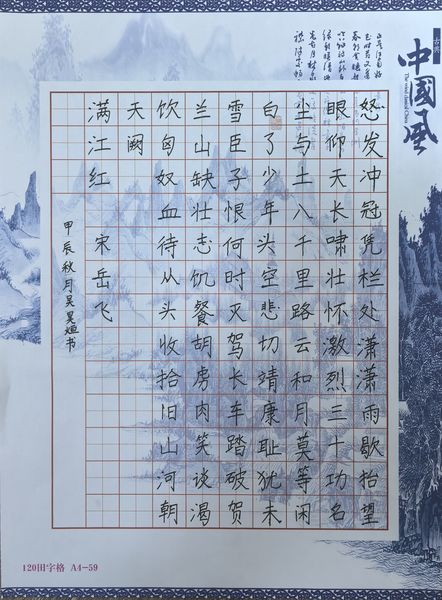 中國風
怒发冲冠凭栏处潇潇雨歇抬望
眼仰天长啸壮怀激烈三十功名
尘与土八千里路云和月莫等闲
白了少年头空悲切靖康耻犹未
雪臣子恨何时灭驾长车踏破贺
兰山缺壮志饥餐胡虏肉笑谈渴
饮匈奴血待从头收拾旧山河朝
天阙
满江红 宋 岳飞
甲辰秋月吴昊书
120田字格 A4-59